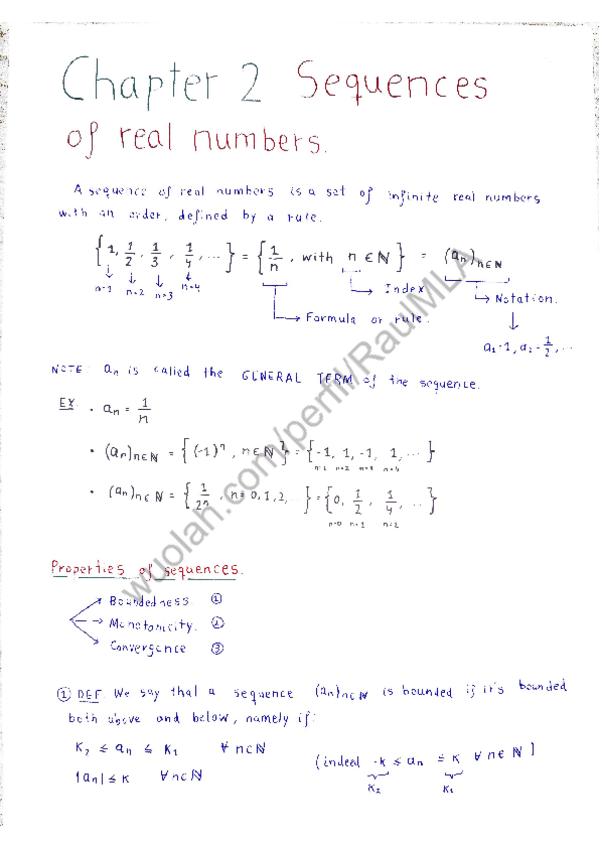 Chapter 2 Sequences
of real numbers.
A sequence of real numbers is a set of infinite real numbers
with an order, defined by a rule.
{1, 1/2, 1/3, 1/4, ...} = {1/n, with n ∈ ℕ} = (an)n∈ℕ
n=1 n=2 n=3 n=4
Index
Notation.
Formula or rule.
a1=1, a2=1/2, ...
NOTE: an is called the GENERAL TERM of the sequence.
EX. • an = 1/n
• (an)n∈ℕ = {(-1)^n, n∈ℕ} = {-1, 1, -1, 1, ...}
n=1 n=2 n=3 n=4
• (an)n∈ℕ = {1/2n, n=0,1,2,...} = {0, 1/2, 1/4, ...}
n=0 n=1 n=2
Properties of sequences.
Boundedness ①
Monotonicity. ②
Convergence ③
① DEF. We say that a sequence (an)n∈ℕ is bounded if it's bounded
both above and below, namely if:
K2 ≤ an ≤ K1 ∀ n∈ℕ
(indeed -K ≤ an ≤ K ∀ n∈ℕ)
|an| ≤ K ∀ n∈ℕ
K2 K1
wuolah.com/perfil/RaulMLA